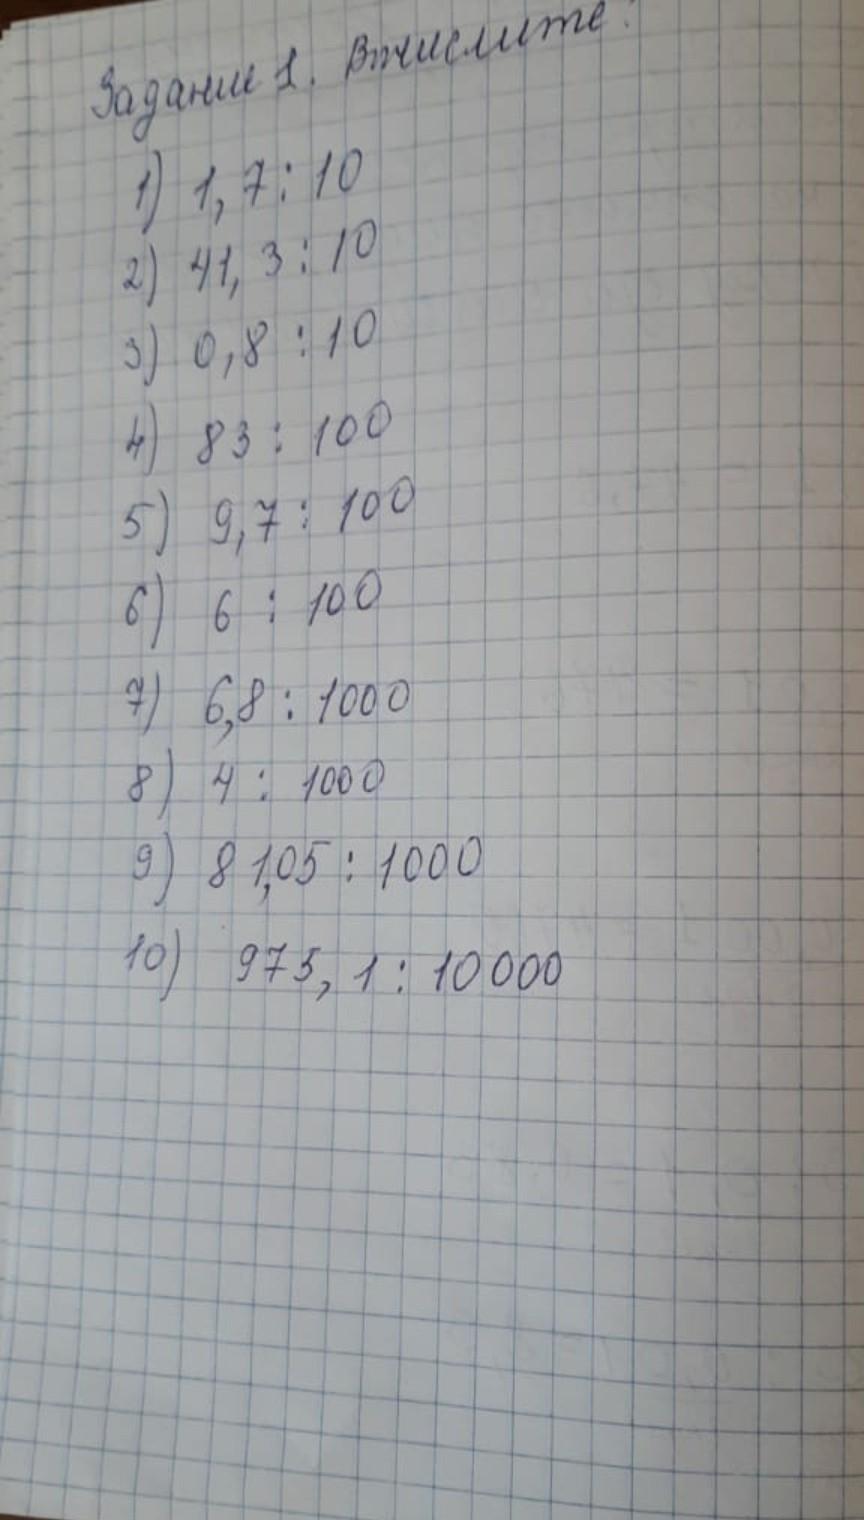 Задание 1. Вычислите:
1) 1,7 : 10
2) 41,3 : 10
3) 0,8 : 10
4) 83 : 100
5) 9,7 : 100
6) 6 : 100
7) 6,8 : 1000
8) 4 : 1000
9) 81,05 : 1000
10) 975,1 : 10000